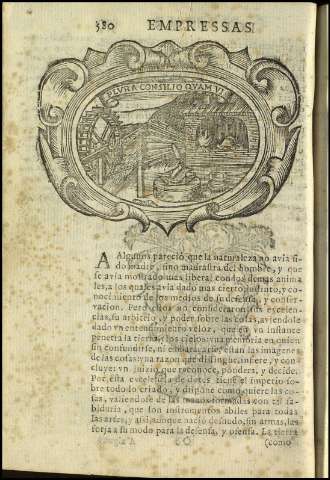 380 EMPRESSAS
PLVRA CONSILIO QVAM VI
A Algunos pareciò que la naturaleza no avia si
do madre, sino madrastra del hombre, y que
se avia mostrado mas liberal con los demas anima
les, a los quales avia dado mas cierto instinto, y co
nocimiento de los medios de su defensa, y conser
vacion. Pero estos no consideraron sus excelen
cias, su arbitrio, y poder sobre las cosas, aviendole
dado vn entendimiento veloz, que en vn instante
penetra la tierra, y los cielos; vna memoria en quien
sin confundirse, ni embaraçarse, estan las imagenes
de las cosas; vna razon que distingue, infiere, y con
cluye; vn juizio que reconoce, pondera, y decide.
Por esta excelencia de dotes tiene el imperio so
bre todo lo criado, y dispone como quiere las co
sas, valiendose de las manos formadas con tal sa
biduria, que son instrumentos abiles para todas
las artes, y assi, aunque naciò desnudo, sin armas, las
forja a su modo para la defensa, y ofensa. La tierra
(como